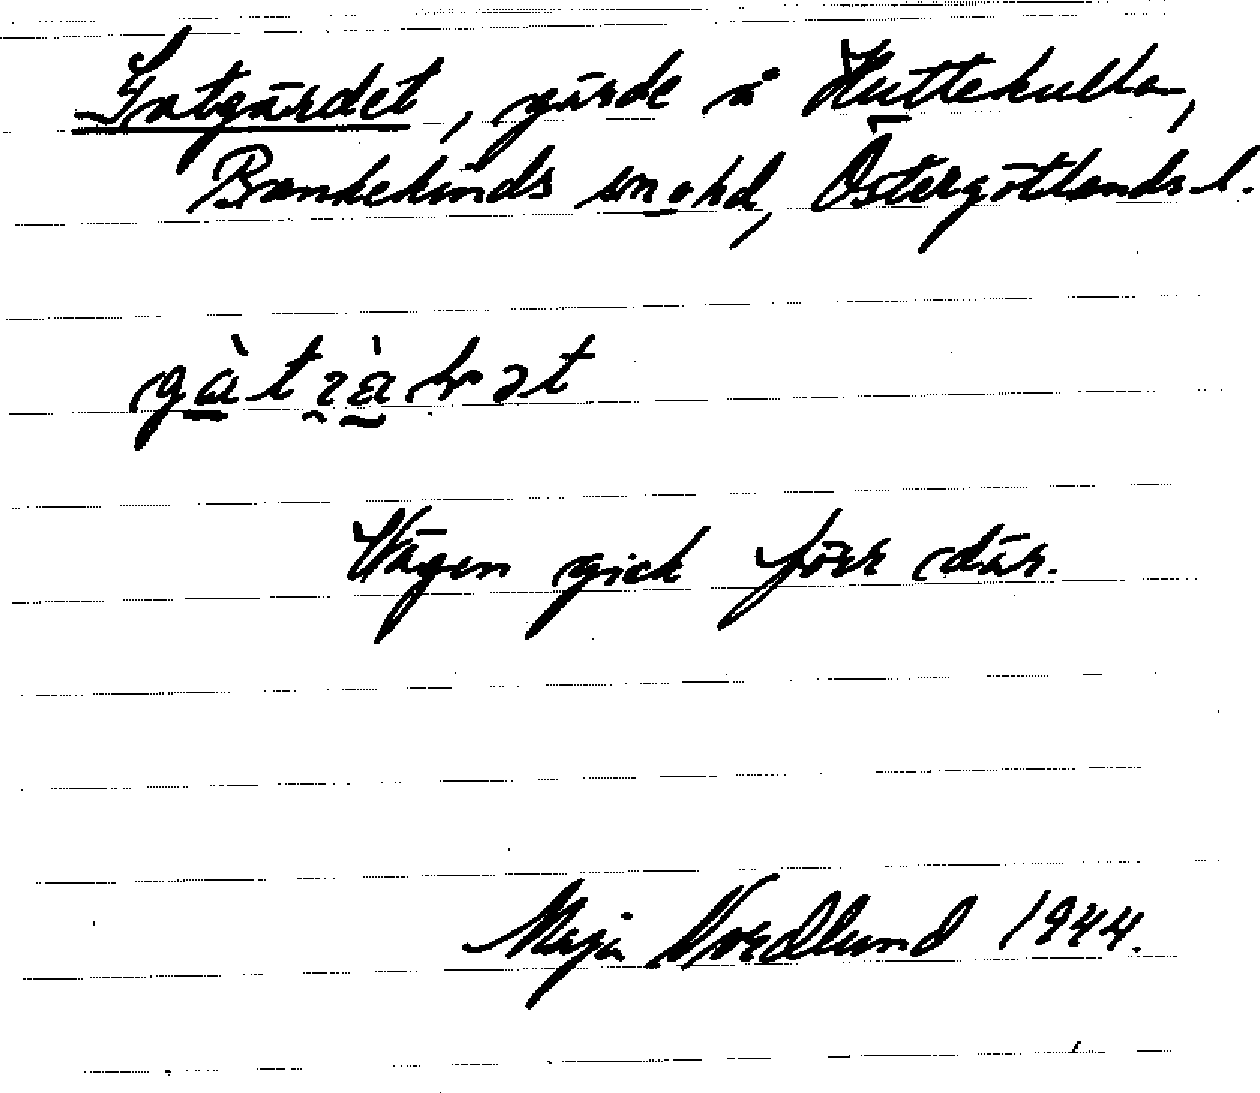 Gatgärdet, gärde å Huttekulla,
Bankekinds sn o hd, Östergötlands l.
Vägen gick förr där.
Maja Nordlund 1944.